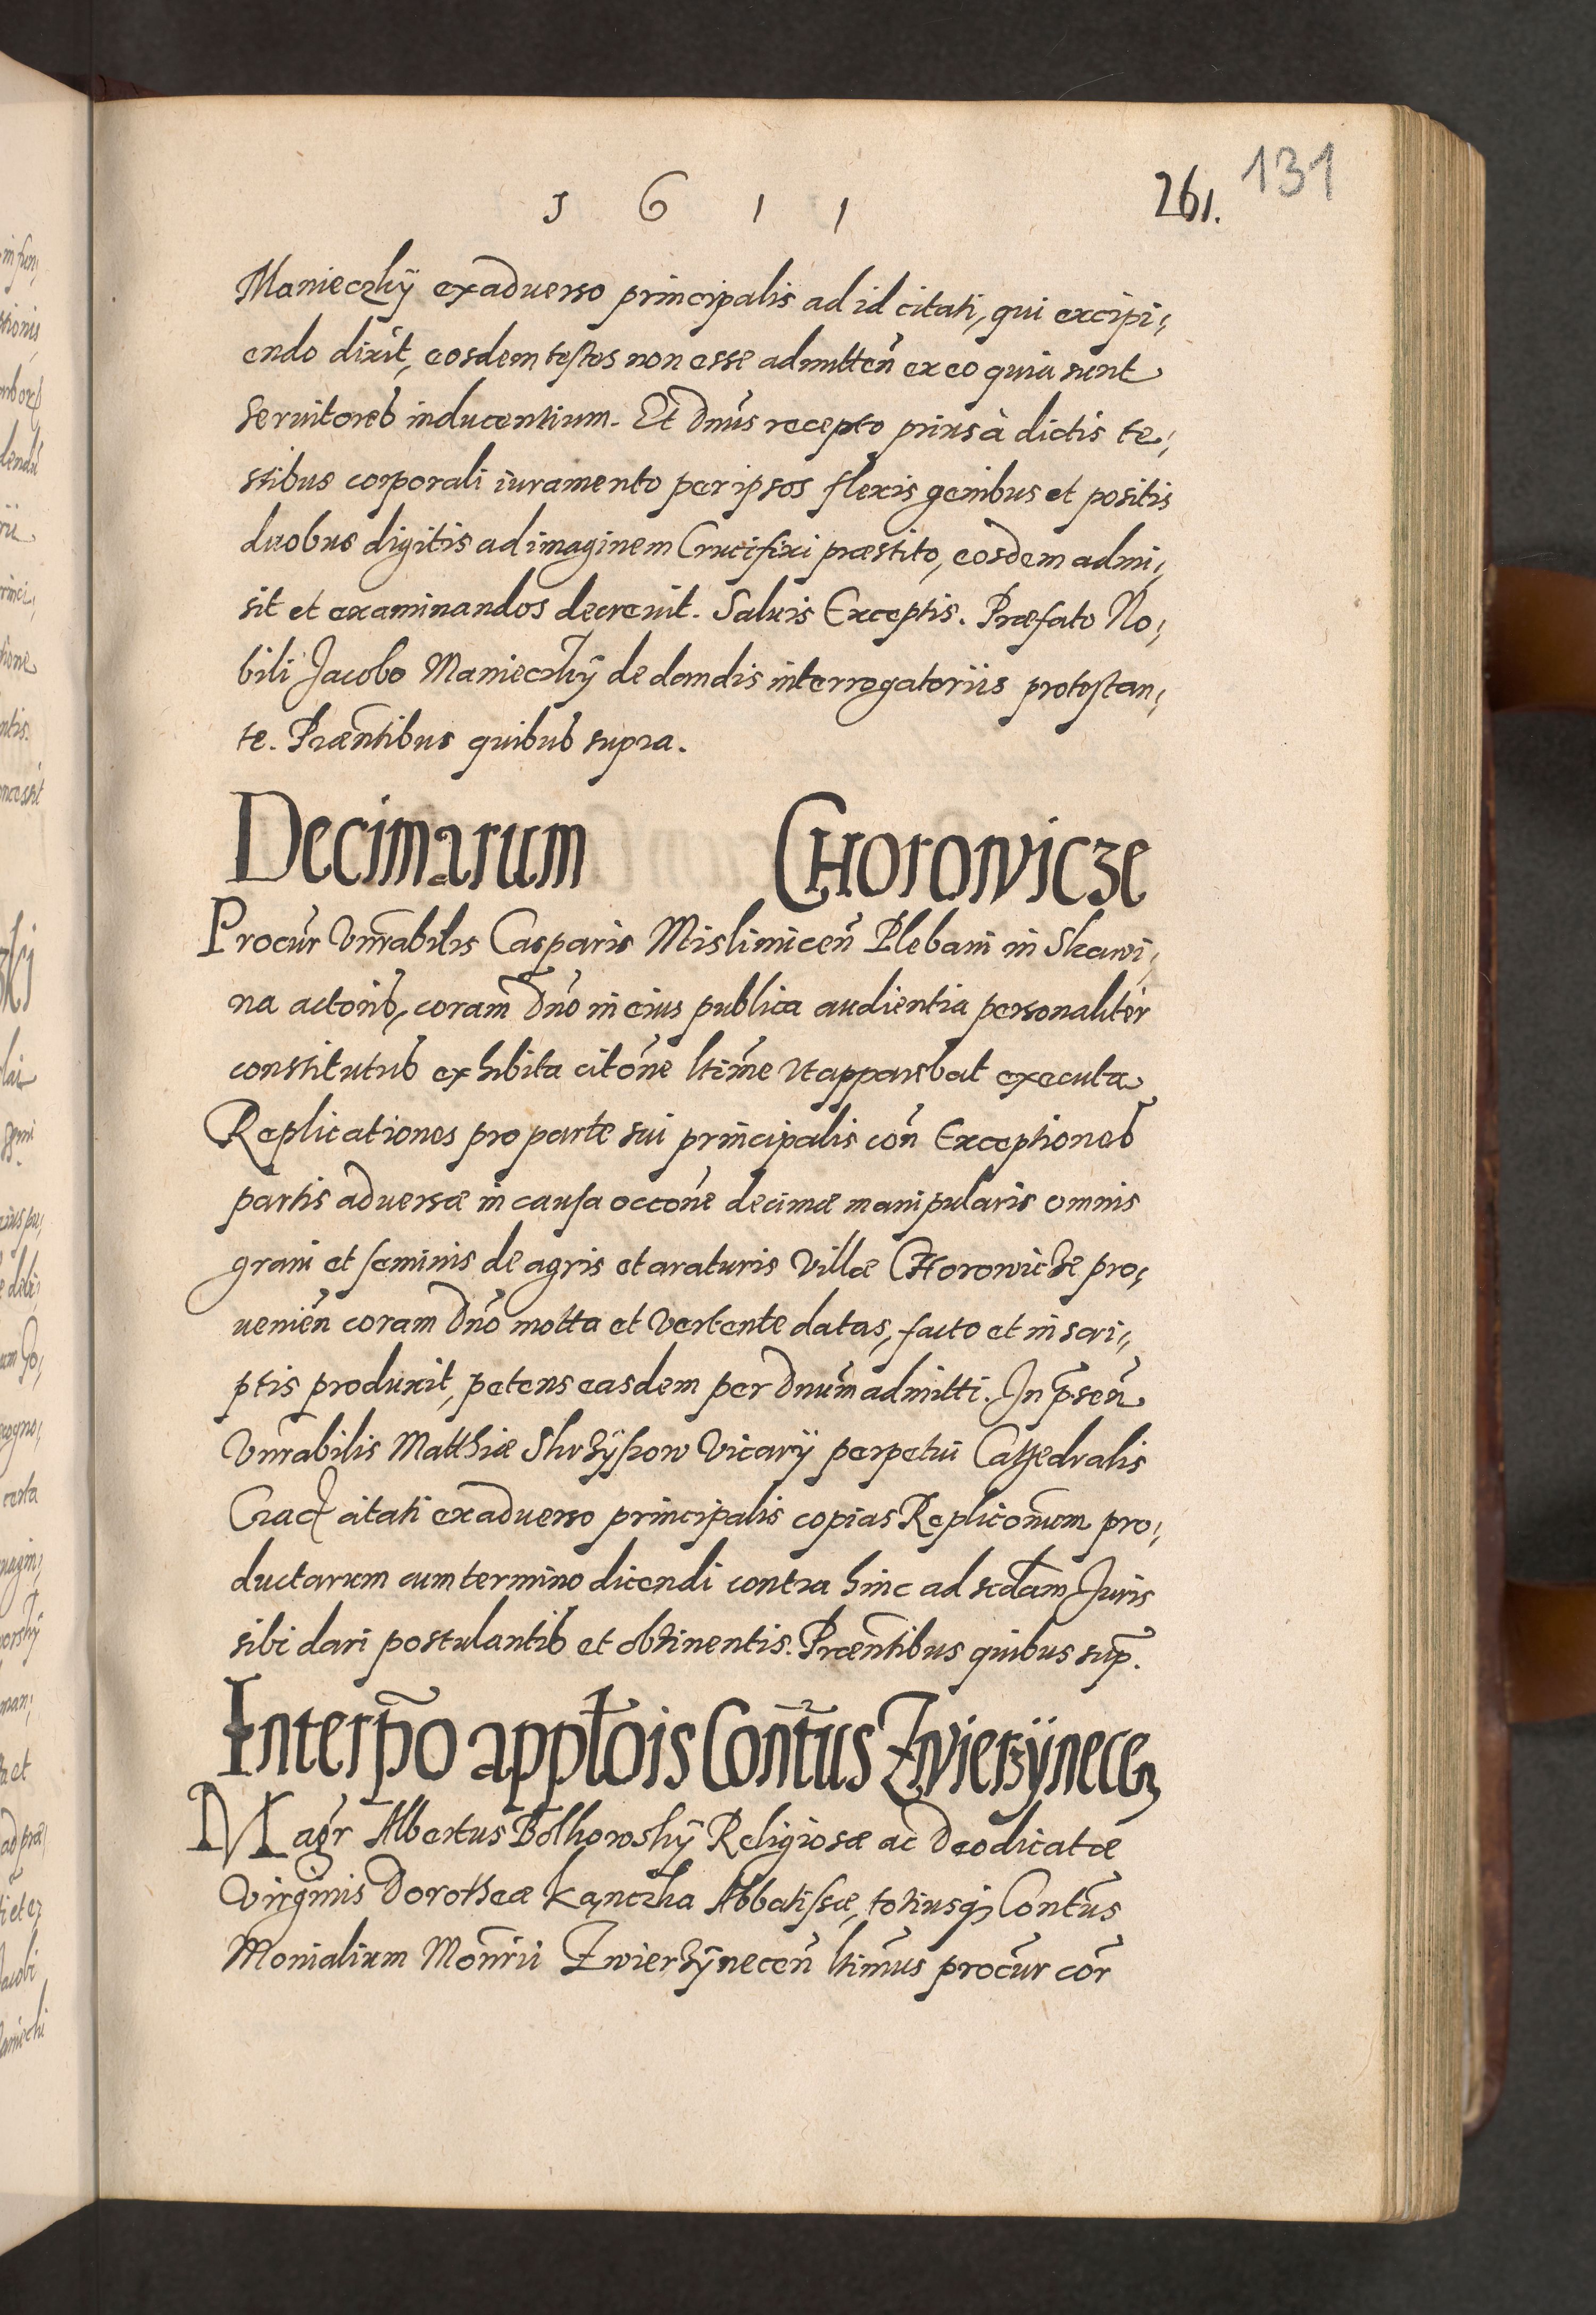 1 6 1 1
261. 131
Manieczkÿ ex aduerso principalis ad id citati, qui excipi,
endo dixit, eosdem testes non esse admitten̄ ex eo quia sunt
seruitores inducentium. Et Dnūs recepto prius à dictis te,
stibus corporali iuramento per ipsos flexis genibus et positis
duobus digitis ad imaginem Crucifixi præstito, eosdem admi,
sit et examinandos decreuit. Saluis Exceptis. Præfato No,
bili Jacobo Manieczkÿ de dandis interrogatoriis protestan,
te. Præn̄tibus quibus supra.
Decimarum CHorowicze
Procur̄ Vnrābilis Casparis Mislimicen̄ Plebani in Skawi,
na actoris, coram Dnō in eius publica audientia personaliter
constitutus exhibita citōne ltīme ut apparebat executa
Replicationes pro parte sui principalis con̄ Exceptiones
partis aduersæ in causa occōne decimæ manipularis omnis
grani et seminis de agris et araturis Villæ CHorowicze pro,
uenien̄ coram Dnō motta et vertente datas, facto et in scri,
ptis produxit, petens easdem per Dnūm admitti. In p̄sen̄
Vnrābilis Matthiæ Skrzÿszow Vicarÿ perpetui Cathedralis
Crac citati ex aduerso principalis copias Replicōnum pro,
ductarum cum termino dicendi contra hinc ad scdām Juris
sibi dari postulantis et obtinentis. Præn̄tibus quibus sup̄.
Interp̄o appłois Con̄tus Zwierzÿnecen
Magr̄ Albertus Bolkowskÿ Religiosæ ac Deo dicatæ
Virginis Dorotheæ Kąnczka Abbatissæ, totiusq; Contūs
Monialium Mon̄rii Zwierzÿnecen̄ ltīmus procur̄ cor̄